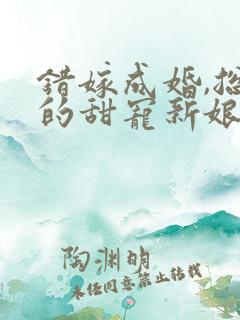 错嫁成婚,总
的甜宠新娘
陶渊明
未经同意禁止转载